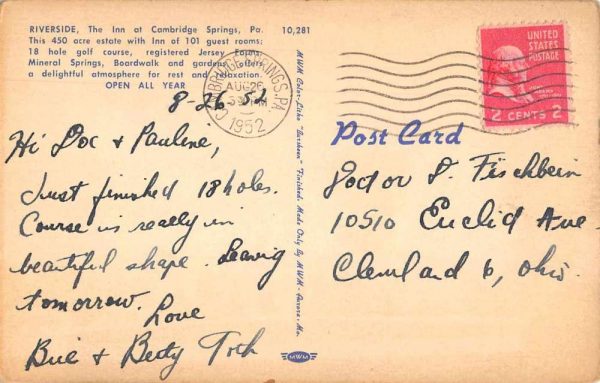 RIVERSIDE, The Inn at Cambridge Springs, Pa.
This 450 acre estate with Inn of 101 guest rooms;
18 hole golf course, registered Jersey Farms,
Mineral Springs, Boardwalk and gardens, offers
a delightful atmosphere for rest and relaxation.
OPEN ALL YEAR
10,281
8-26 52
CAMBRIDGE SPRINGS, PA.
AUG 26
1952
UNITED
STATES
POSTAGE
2 CENTS 2
Hi Doc & Pauline,
Just finished 18 holes.
Course is really in
beautiful shape. Leavig
tomorrow.
Love
Bill & Betty
MWM Color-Litho "Lusheen" Finished. Made Only By MWM - Aurora, Mo.
MWM
Post Card
Doctor J. Fischbein
10510 Euclid Ave
Cleveland 6, Ohio.